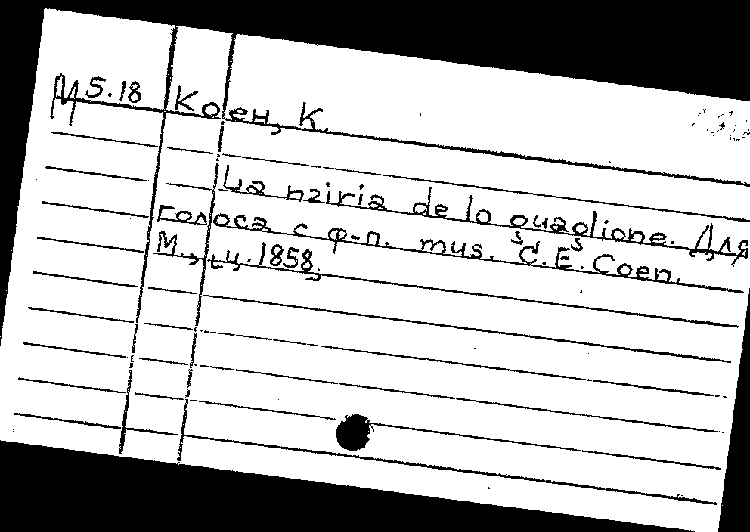 М 5.18 Коен, К.
La nziria de lo guaglione. Для
голоса с ф-п. mus. C. E. Coen.
М., ц. 1858.